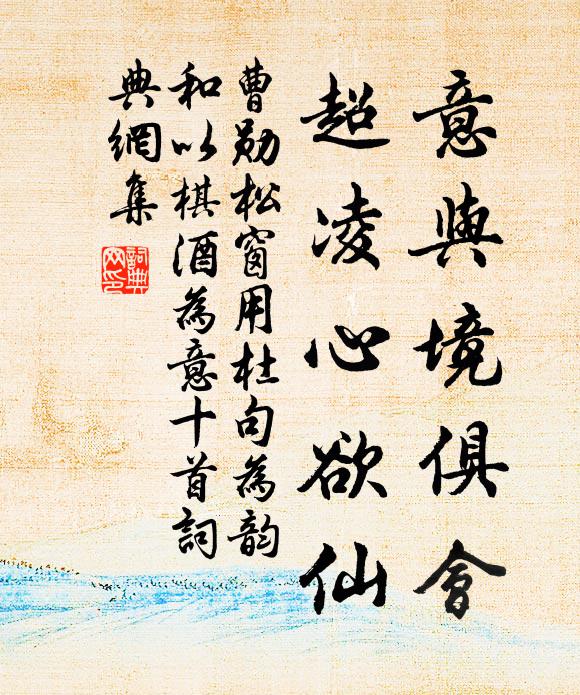 意與境俱會
超凌心欲仙
曹勛松窗用杜句為韵
和以棋酒為意十首詞
典網集
詞典網印